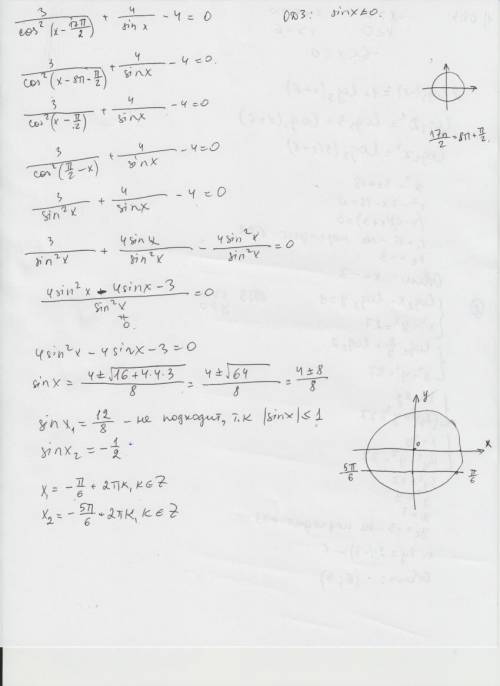 3/cos²(x - 17π/2) + 4/sin x - 4 = 0
ОДЗ: sin x ≠ 0.
3/cos²(x - 8π - π/2) + 4/sin x - 4 = 0.
3/cos²(x - π/2) + 4/sin x - 4 = 0
17π/2 = 8π + π/2.
3/cos²(π/2 - x) + 4/sin x - 4 = 0
3/sin²x + 4/sin x - 4 = 0
3/sin²x + 4 sin x/sin²x - 4 sin²x/sin²x = 0
(4 sin²x - 4 sin x - 3)/sin²x = 0
≠
0.
4 sin²x - 4 sin x - 3 = 0
sin x = (4 ± √(16 + 4·4·3))/8 = (4 ± √64)/8 = (4 ± 8)/8
sin x₁ = 12/8 - не подходит, т.к |sin x| ≤ 1
sin x₂ = -1/2
x₁ = -π/6 + 2πк, к ∈ Z
x₂ = -5π/6 + 2πк, к ∈ Z
y
0
x
5π/6
-π/6